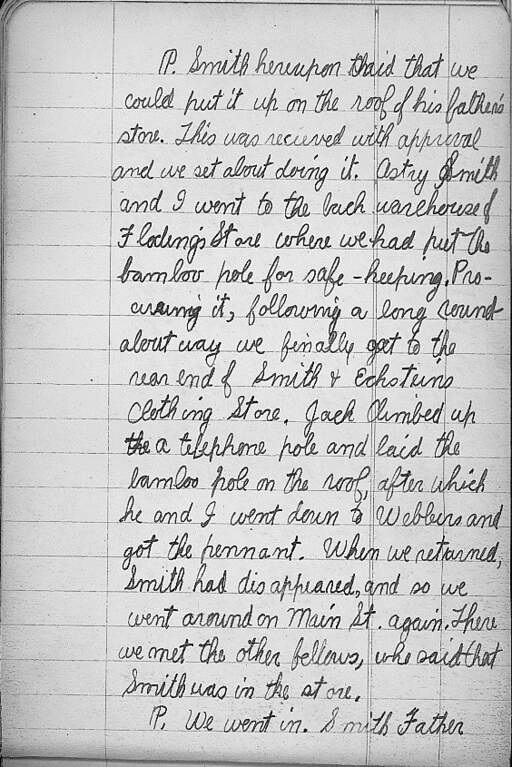 P. Smith hereupon said that we
could put it up on the roof of his father's
store. This was recieved with approval
and we set about doing it. Astry Smith
and I went to the back warehouse of
Floding's Store where we had put the
bamboo pole for safe-keeping. Pro-
curing it, following a long round-
about way we finally got to the
rear end of Smith & Eckstein's
Clothing Store. Jack Climbed up
the a telephone pole and laid the
bamboo pole on the roof, after which
he and I went down to Webbers and
got the pennant. When we returned,
Smith had disappeared, and so we
went around on Main St. again. There
we met the other fellows, who said that
Smith was in the store.
P. We went in. Smith Father